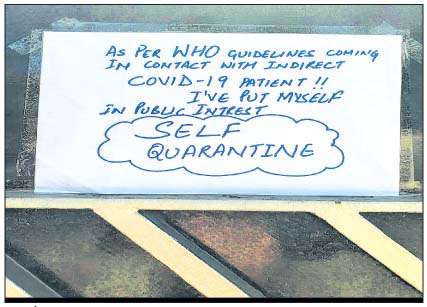 AS PER WHO GUIDELINES COMING
IN CONTACT WITH INDIRECT
COVID-19 PATIENT !!
I'VE PUT MYSELF
IN PUBLIC INTREST
SELF
QUARANTINE